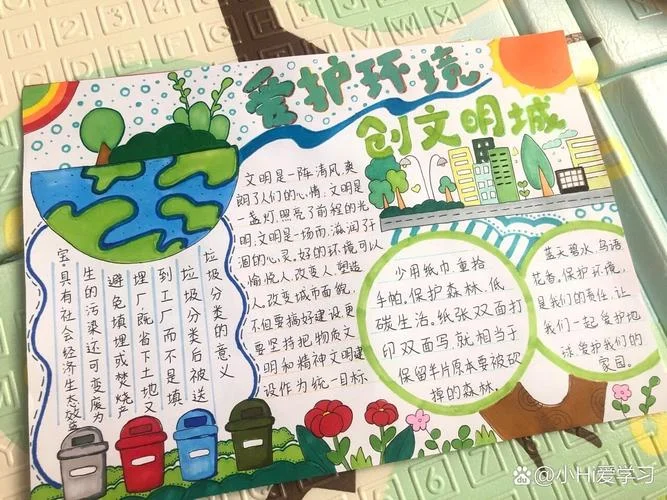 爱护环境
创文明城
垃圾分类的意义
垃圾分类后被送
到工厂而不是填
埋厂既省下土地又
避免填埋或焚烧产
生的污染还可变废为
宝·具有社会经济生态效
文明是一阵清风,爽
朗了人们的心情.文明是
一盏灯.照亮了前程的光
明.文明是一场雨.滋润了干
涸的心灵.好的环境可以
愉悦人.改变人.塑造
人.改变城市面貌,
不但要搞好建设更
要坚持把物质文
明和精神文明建
设作为统一目标
少用纸巾.重拾
手帕.保护森林.低
碳生活。纸张双面打
印双面写.就相当于
保留半片原本要被砍
掉的森林.
蓝天碧水.鸟语
花香.保护环境,
是我们的责任.让
我们一起爱护地
球.爱护我们的
家园。
@小Hi爱学习